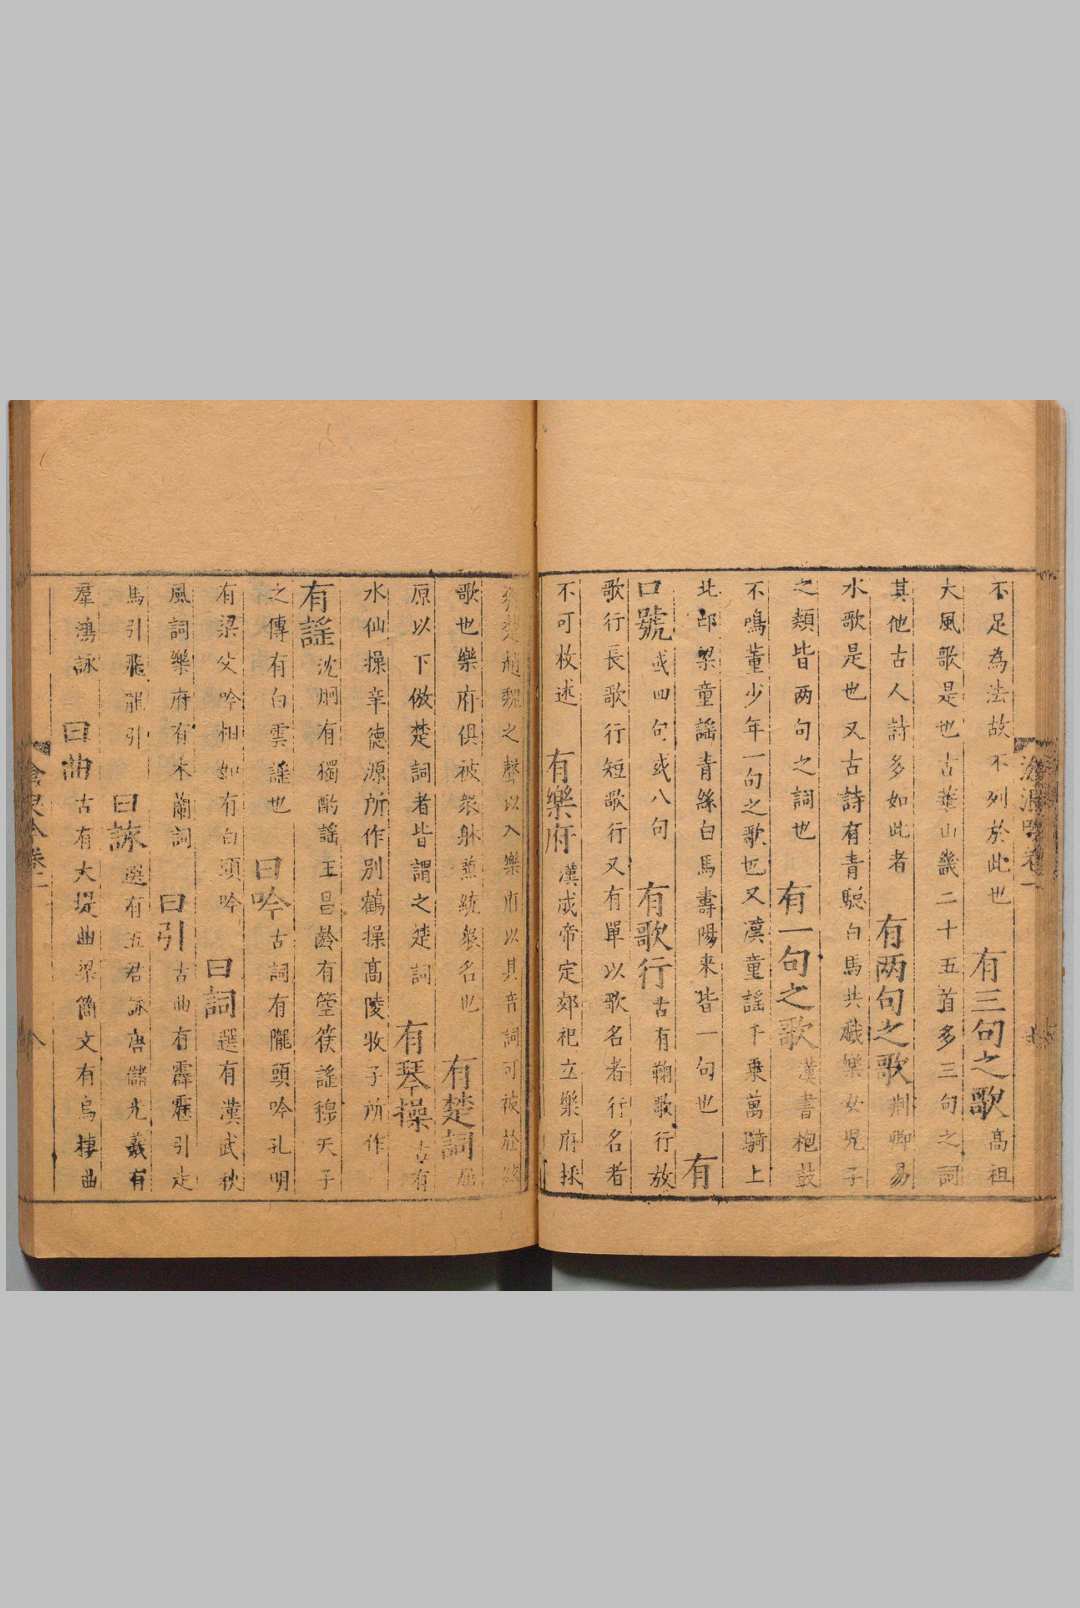 不足為法故不列於此也　有三句之歌高祖
大風歌是也古華山畿二十五首多三句之詞
其他古人詩多如此者　有兩句之歌荆卿易
水歌是也又古詩有青驄白馬共戲樂女兒子
之類皆兩句之詞也　有一句之歌漢書枹鼓
不鳴董少年一句之歌也又漢童謠千乘萬騎上
北邙梁童謠青絲白馬壽陽來皆一句也　有
口號或四句或八句　有歌行古有鞠歌行放
歌行長歌行短歌行又有單以歌名者行名者
不可枚述　有樂府漢成帝定郊祀立樂府採
齊楚趙魏之聲以入樂府以其音詞可被於絲
歌也樂府俱被衆躰兼統衆名也　有楚詞屈
原以下倣楚詞者皆謂之楚詞　有琴操古有
水仙操辛德源所作別鶴操高陵牧子所作
有謠沈炯有獨酌謠王昌齡有箜篌謠穆天子
之傳有白雲謠也　曰吟古詞有隴頭吟孔明
有梁父吟相如有白頭吟　曰詞選有漢武秋
風詞樂府有木蘭詞　曰引古曲有霹靂引走
馬引飛龍引　曰詠選有五君詠唐儲光羲有
羣鴻詠　曰曲古有大堤曲梁簡文有烏棲曲